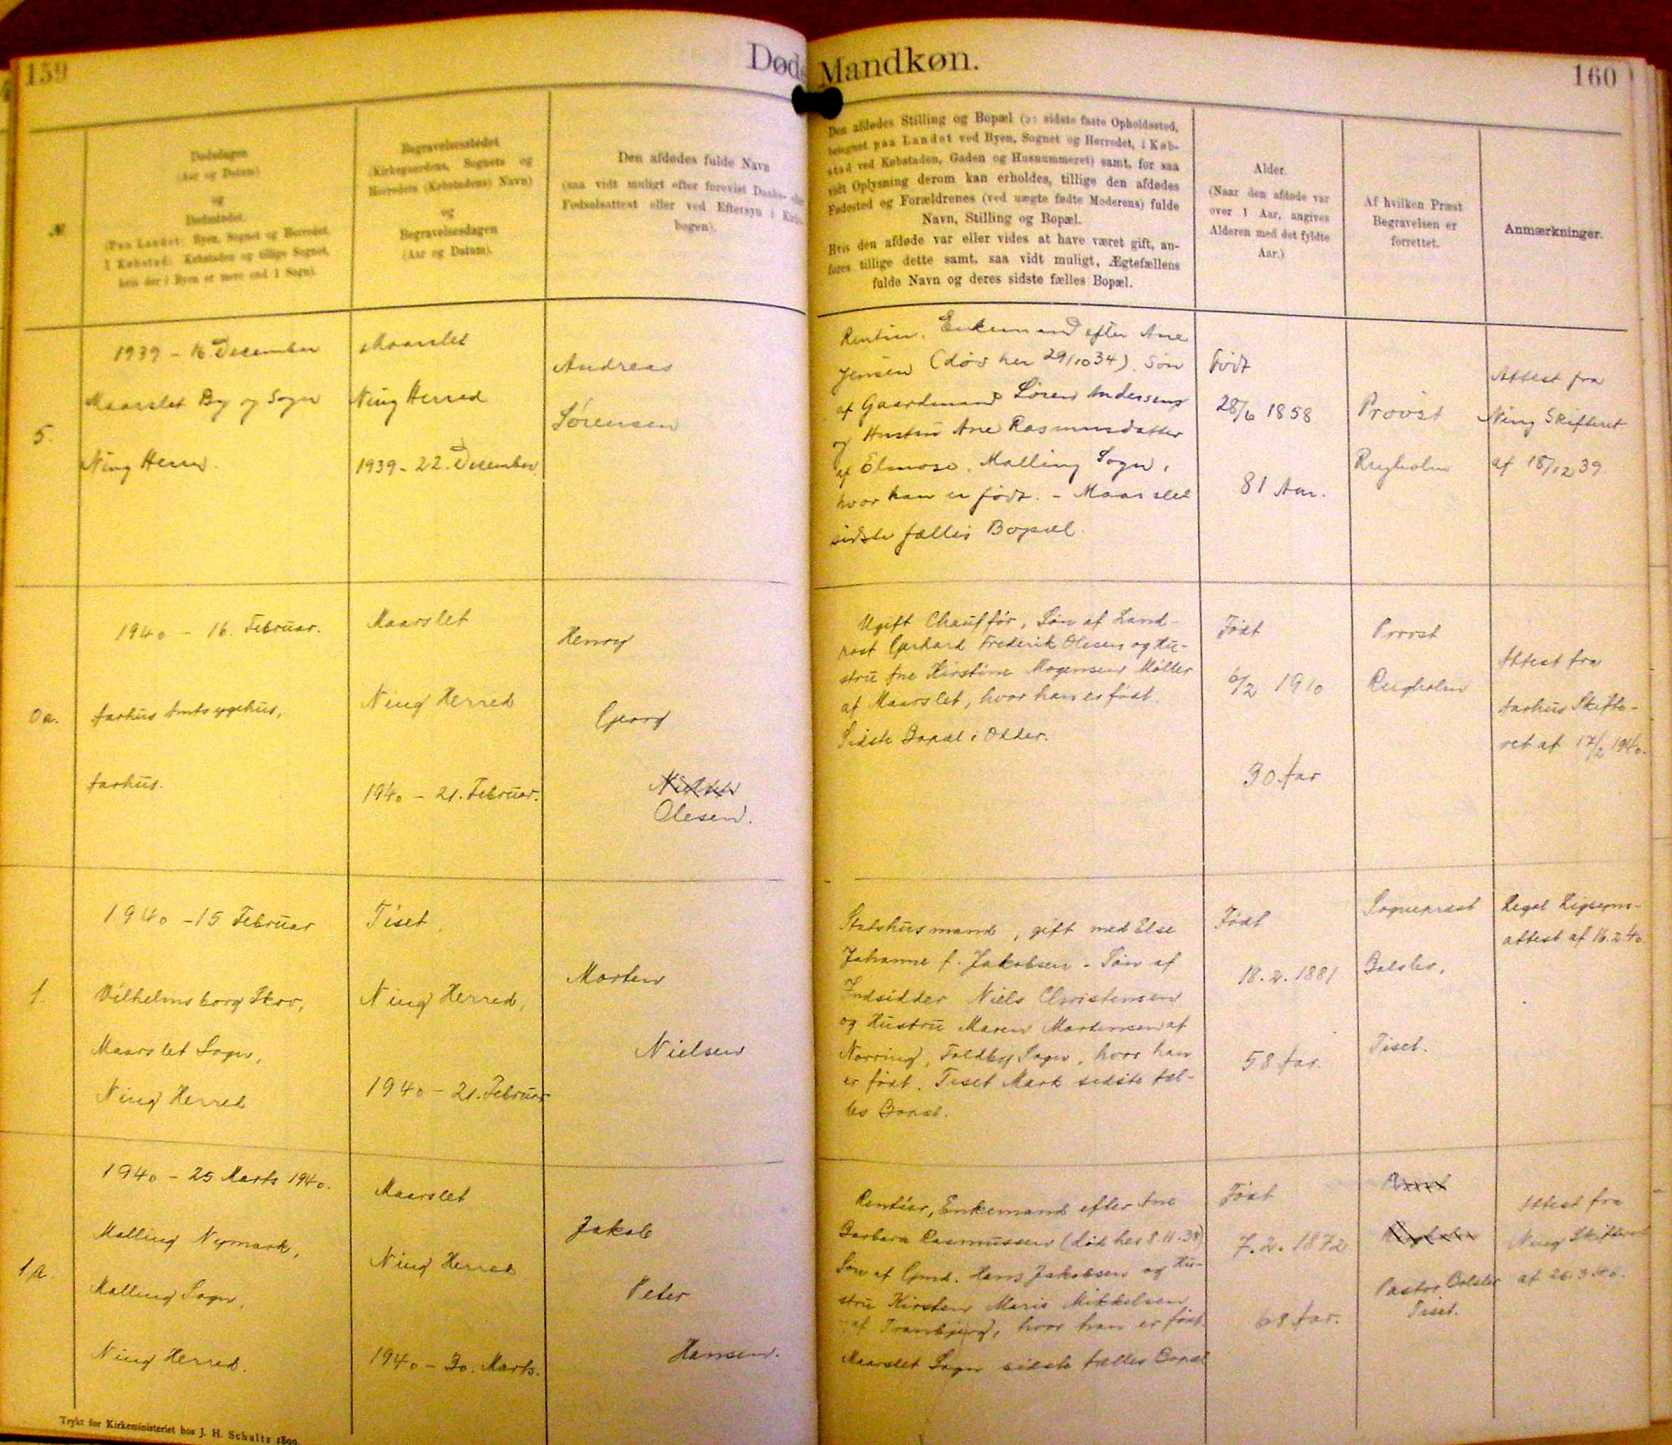 159
Døde
Mandkøn.
160
№
Dødsdagen
(Aar og Datum)
og
Dødsstedet.
(Paa Landet: Byen, Sognet og Herredet.
I Købstad: Købstaden og tillige Sognet,
hvis der i Byen er mere end 1 Sogn).
Begravelsesstedet
(Kirkegaardens, Sognets og
Herredets (Købstadens) Navn)
og
Begravelsesdagen
(Aar og Datum).
Den afdødes fulde Navn
(saa vidt muligt efter forevist Daabs- eller
Fødselsattest eller ved Eftersyn i Kirke-
bogen).
Den afdødes Stilling og Bopæl (ɔ: sidste faste Opholdssted,
betegnet paa Landet ved Byen, Sognet og Herredet, i Køb-
stad ved Købstaden, Gaden og Husnummeret) samt, for saa
vidt Oplysning derom kan erholdes, tillige den afdødes
Fødested og Forældrenes (ved uægte fødte Moderens) fulde
Navn, Stilling og Bopæl.
Hvis den afdøde var eller vides at have været gift, an-
føres tillige dette samt, saa vidt muligt, Ægtefællens
fulde Navn og deres sidste fælles Bopæl.
Alder.
(Naar den afdøde var
over 1 Aar, angives
Alderen med det fyldte
Aar.)
Af hvilken Præst
Begravelsen er
forrettet.
Anmærkninger.
5.
1939 - 16. December
Maarslet By og Sogn
Ning Herred.
Maarslet
Ning Herred
1939 - 22. December
Andreas
Sörensen
Rentier. Enkemand efter Ane
Jensen (død her 29/10 34). Søn
af Gaardmand Sören Andersen
og Hustru Ane Rasmusdatter
af Elmose, Malling Sogn,
hvor han er født. - Maarslet
sidste fælles Bopæl.
født
28/6 1858
81 Aar.
Provst
Rugholm
Attest fra
Ning Skifteret
af 18/12 39.
0a.
1940 - 16. Februar.
Aarhus Amtssygehus,
Aarhus.
Maarslet
Ning Herred
1940 - 21. Februar.
Henry
Georg
Olesen.
Ugift Chauffør, Søn af Land-
post Gerhard Frederik Olesen og Hu-
stru Ane Kirstine Mogensen Møller
af Maarslet, hvor han er født.
Sidste Bopæl i Odder.
Født
6/2 1910
30 Aar
Provst
Rugholm
Attest fra
Aarhus Skifte-
ret af 17/2 1940.
1.
1940 - 15 Februar
Vilhelmsborg Skov,
Maarslet Sogn,
Ning Herred
Tiset,
Ning Herred,
1940 - 21. Februar
Morten
Nielsen
Statshusmand, gift med Else
Johanne f. Jakobsen - Søn af
Indsidder Niels Christensen
og Hustru Maren Mortensen af
Norring, Foldby Sogn, hvor han
er født. Tiset Mark sidste fæl-
les Bopæl.
Født
18.2.1881
58 Aar.
Sognepræst
Balslev,
Tiset.
Legal Ligsyns-
attest af 16.2.40
1a.
1940 - 25 Marts 1940.
Malling Nymark,
Malling Sogn,
Ning Herred.
Maarslet
Ning Herred
1940 - 30. Marts.
Jakob
Peter
Hansen.
Rentier, Enkemand efter Ane
Barbara Rasmussen (død her 8.11.38)
Søn af Gmd. Hans Jakobsen og Hu-
stru Kirsten Marie Mikkelsen
af Tranbjerg, hvor han er født.
Maarslet Sogn sidste fælles Bopæl
Født
7.2.1872
68 Aar.
Pastor Balslev
Tiset.
Attest fra
Ning Skifteret
af 26.3.40.
Trykt for Kirkeministeriet hos J. H. Schultz